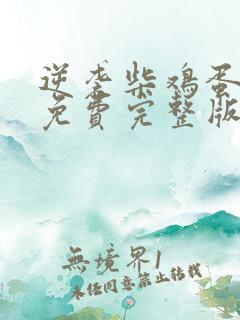 逆袭柴鸡蛋
免費完整版
無境界1
未経同意禁止转载